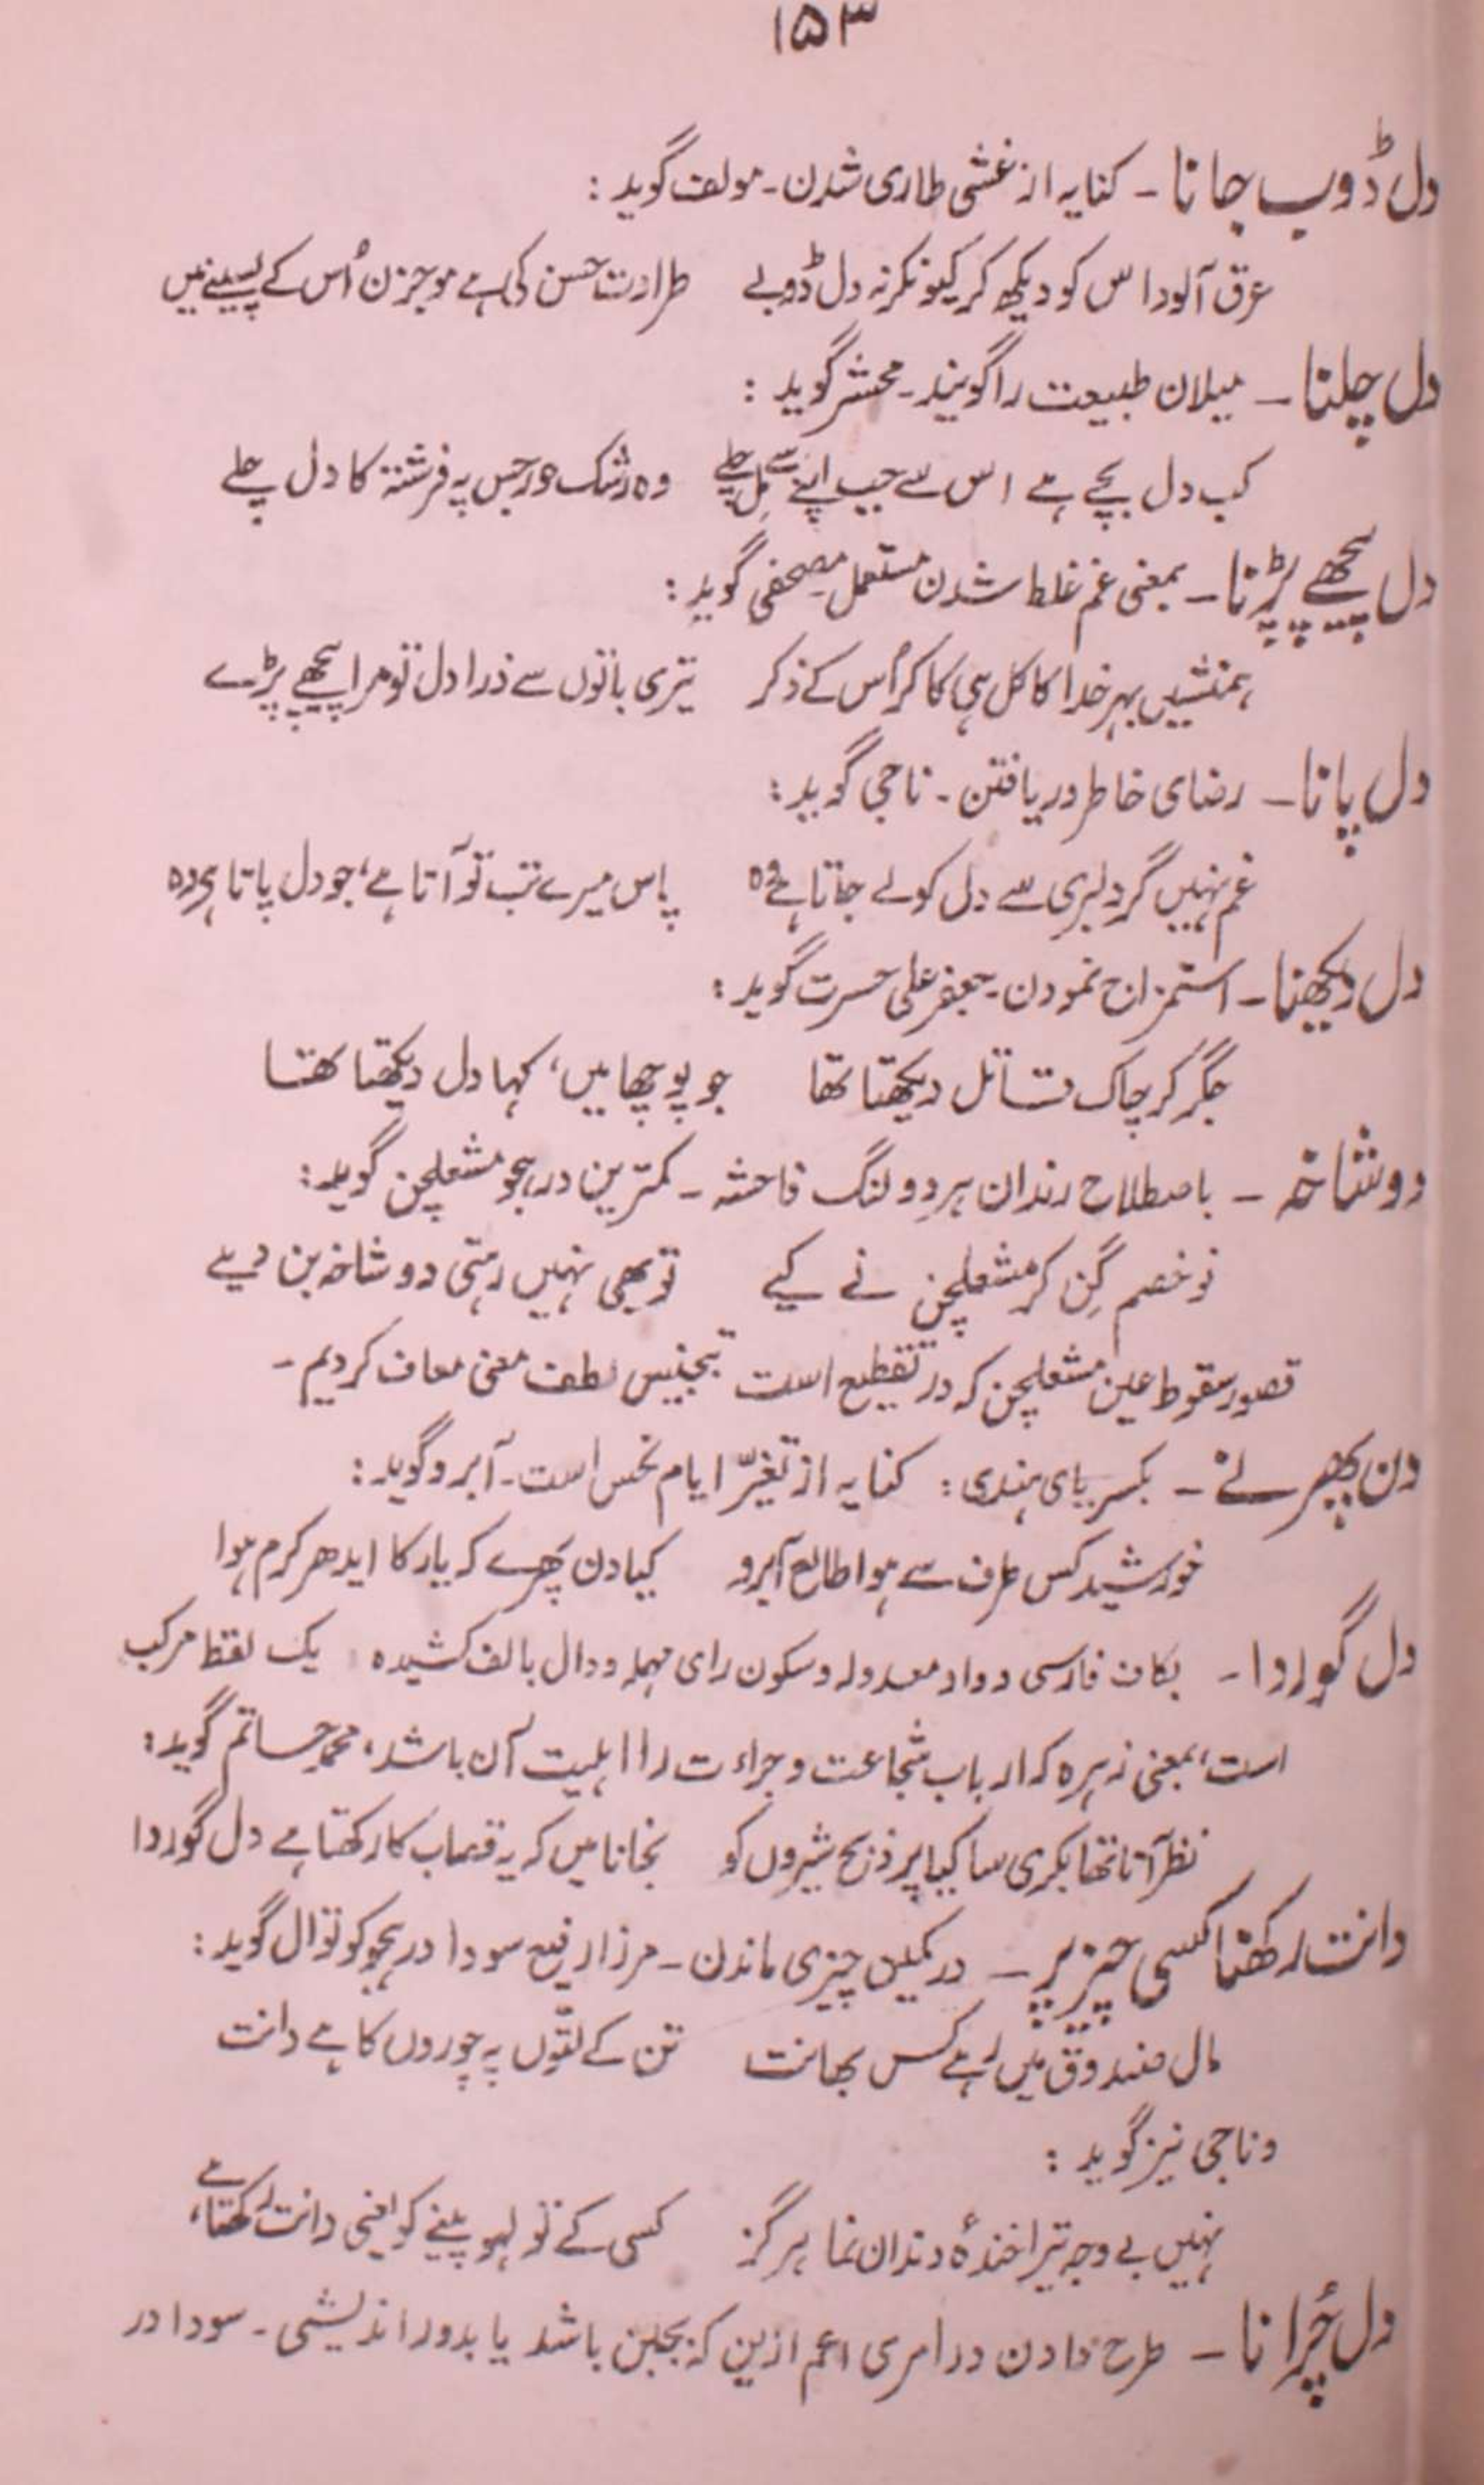 ۱۵۳
دل ڈوب جانا ۔ کنایہ از غشی طاری شدن ۔ مولف گوید :
عرق آلودا س کو دیکھ کر کیونکر نہ دل ڈوبے طراوت حسن کی ہے موجزن اُس کے پسینے میں
دل چلنا ۔ میلان طبیعت را گویند ۔ محشر گوید :
کب دل بچے ہے اس سے جب اپنے سے مِل چلے وہ رشک حور جس پہ فرشتہ کا دل چلے
دل پیچھے پڑنا ۔ بمعنی غم غلط شدن مستعمل مصحفی گوید :
ہمنشیں بہر خدا کا کل ہی کا کر اُس کے ذکر تیری باتوں سے ذرا دل تو مرا پیچھے پڑے
دل پانا ۔ رضای خاطر دریافتن ۔ ناجی گوید :
غم نہیں گر دلبری سے دل کو لے جاتا ہے وہ پاس میرے تب تو آتا ہے، جو دل پاتا ہی وہ
دل دیکھنا ۔ استمزاج نمودن ۔ جعفر علی حسرت گوید :
جگر کر چاک قاتل دیکھتا تھا جو پوچھا میں، کہا دل دیکھتا تھا
دوشاخہ ۔ باصطلاح رندان ہر دو لنگ فاحشہ ۔ کمترین در ہجو مشعلچن گوید :
نو خصم گِن کر مشعلچن نے کیے تو بھی نہیں رہتی دو شاخہ بن دیے
قصور سقوط عین مشعلچن کہ در تقطیع است تجنیس لطف معنی معاف کردیم ۔
دن پھرنے ۔ بکسر بای ہندی : کنایہ از تغیّر ایام نحس است ۔ آبرو گوید :
خورشید کس طرف سے ہوا طالع آبرو کیا دن پھرے کہ یار کا ایدھر کرم ہوا
دل گوردا ۔ بکاف فارسی و واو معدولہ و سکون رای مہملہ و دال بالف کشیدہ یک لفظ مرکب
است، بمعنی زہرہ کہ ارباب شجاعت و جراءت را اہلیت آن باشد، محمد حاتم گوید :
نظر آتا تھا بکری سا کیا پر ذبح شیروں کو نجانا میں کہ یہ قصاب کا رکھتا ہے دل گوردا
دانت رکھنا کسی چیز پر ۔ در کمین چیزی ماندن ۔ مرزا رفیع سودا در ہجو کوتوال گوید :
مال صندوق میں رہے کس بھانت تن کے لتّوں پہ چوروں کا ہے دانت
و ناجی نیز گوید :
نہیں بے وجہ تیرا خندۂ دندان نما ہرگز کسی کے تو لہو پینے کو اینی دانت رکھتا ہے
دل چُرانا ۔ طرح دادن در امری اعم ازین کہ بجبن باشد یا بدور اندیشی ۔ سودا در